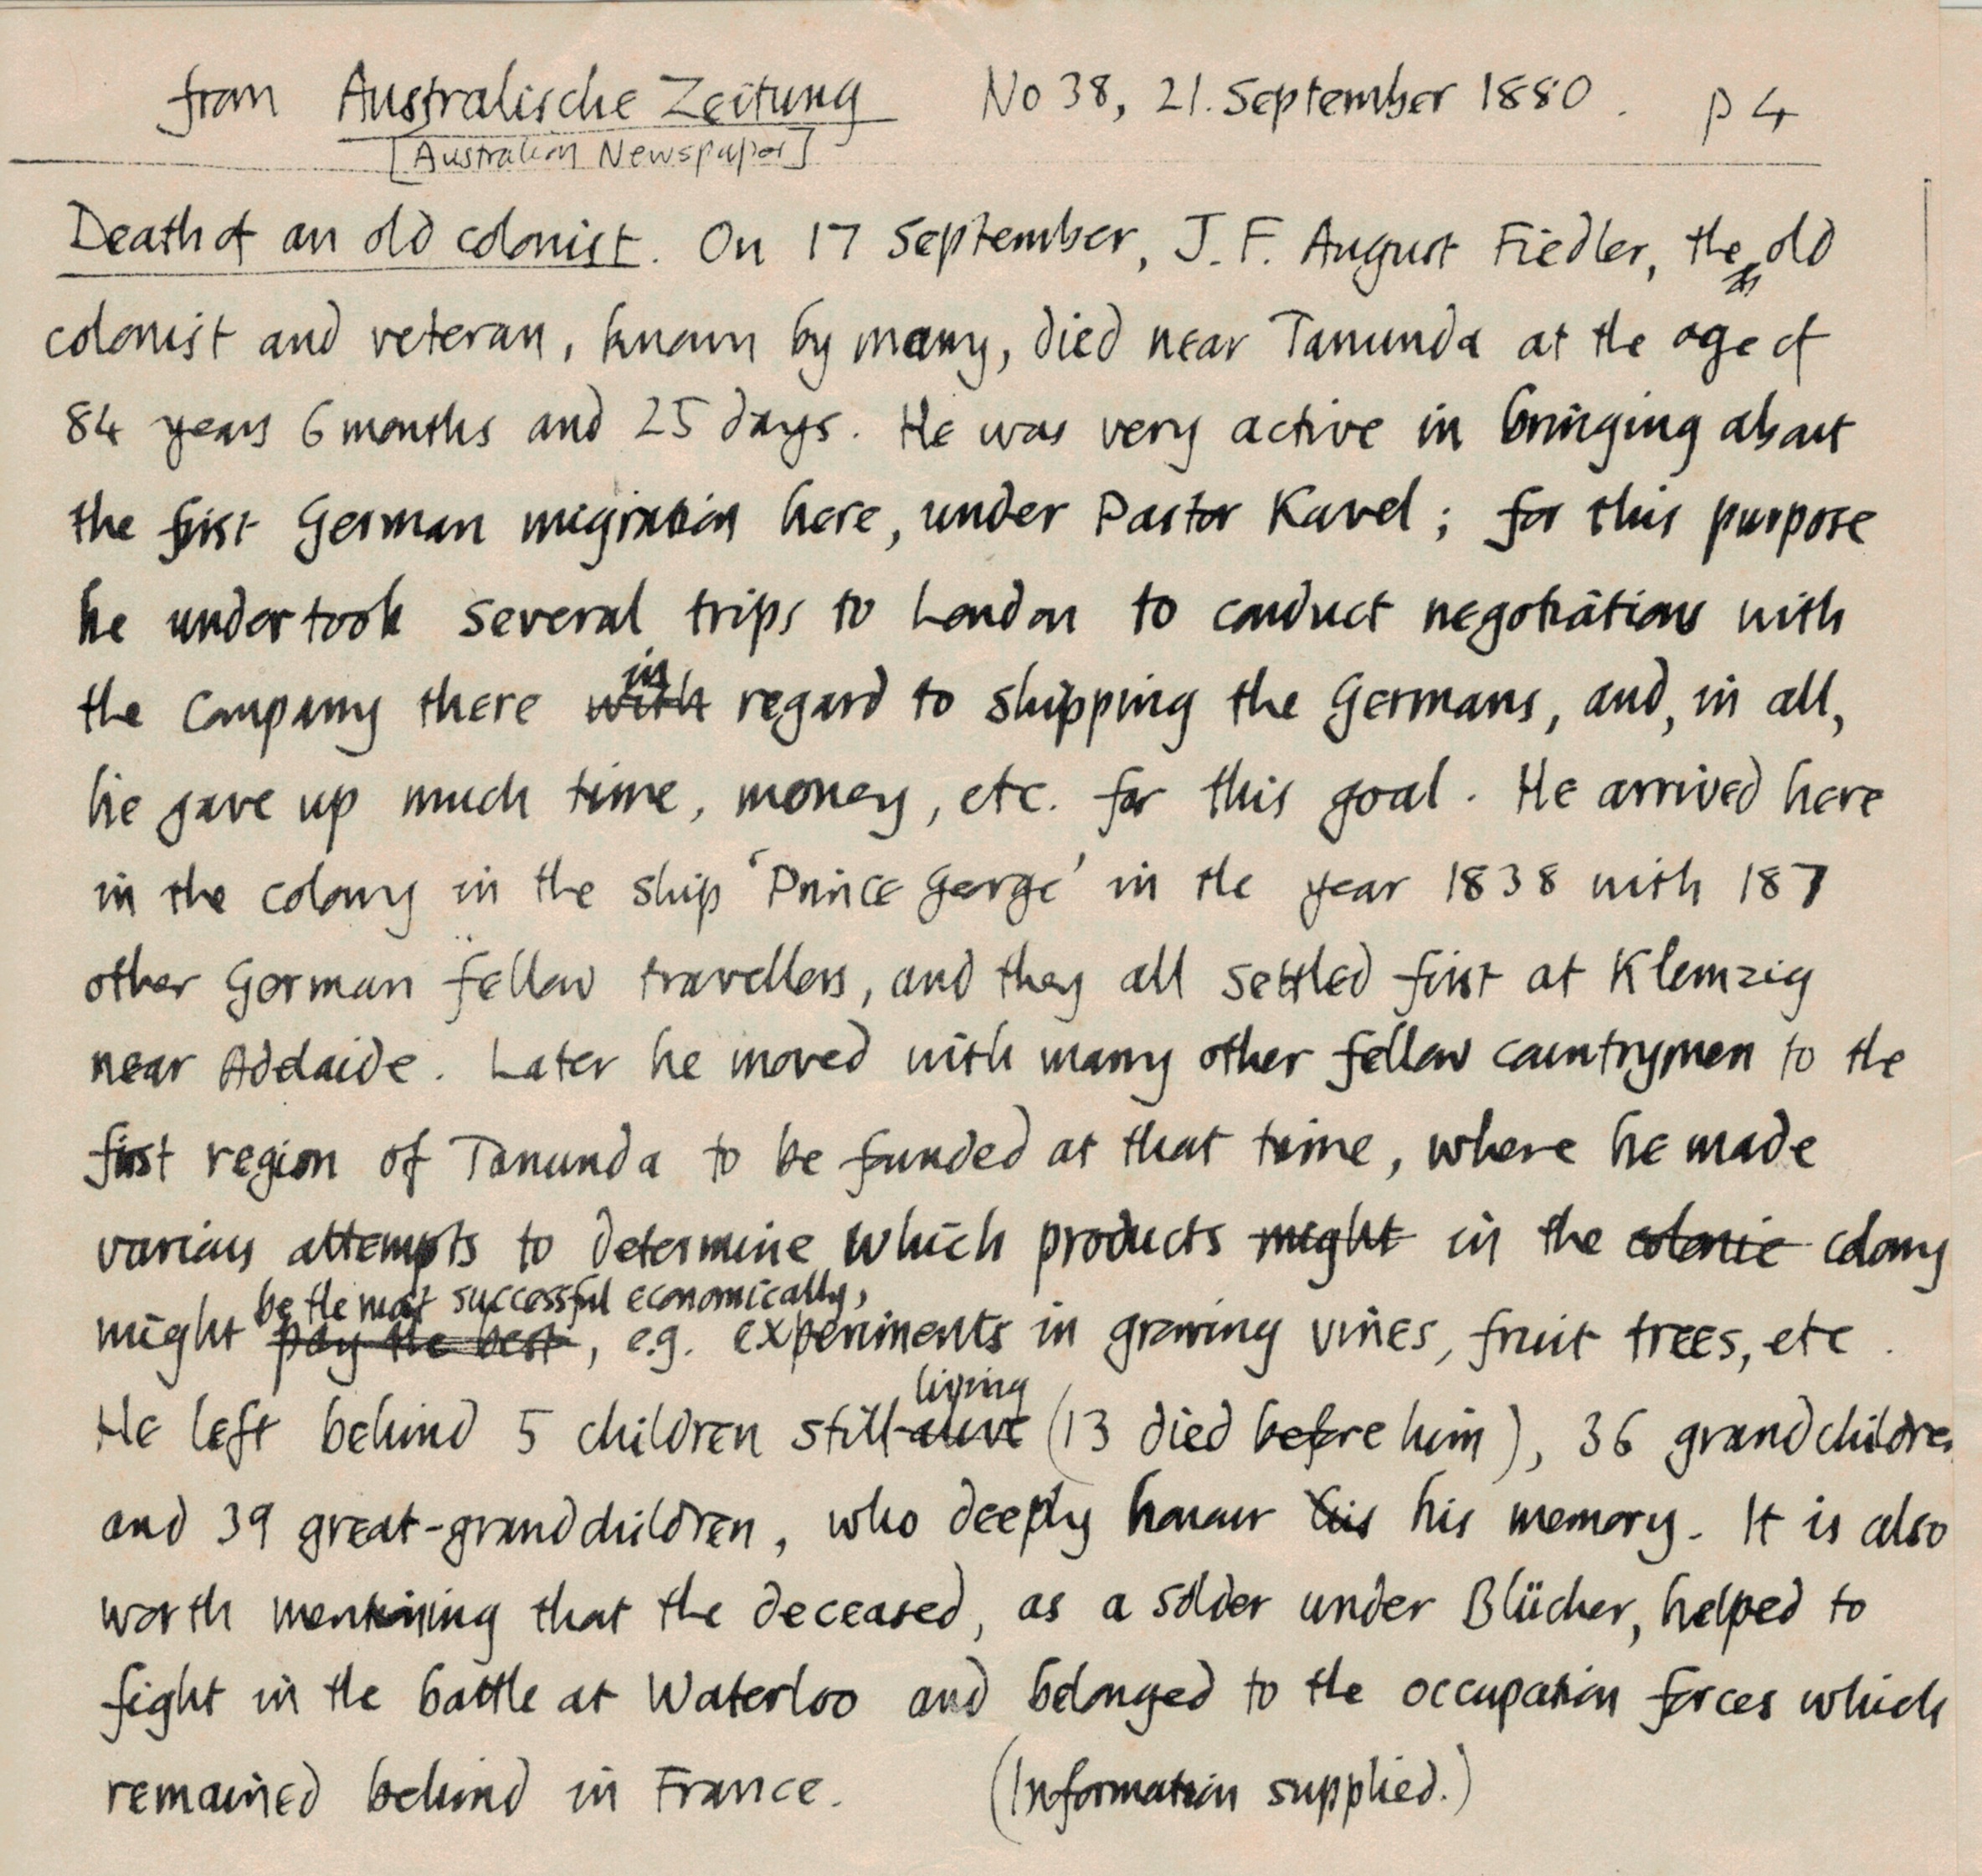 from Australische Zeitung No 38, 21. September 1880. p 4
[Australian Newspaper]
Death of an old colonist. On 17 September, J. F. August Fiedler, the old
colonist and veteran, known by many, died near Tanunda at the age of
84 years 6 months and 25 days. He was very active in bringing about
the first German migration here, under Pastor Kavel; for this purpose
he undertook several trips to London to conduct negotiations with
in
the Company there with regard to shipping the Germans, and, in all,
he gave up much time, money, etc. for this goal. He arrived here
in the colony in the ship 'Prince George' in the year 1838 with 187
other German fellow travellers, and they all settled first at Klemzig
near Adelaide. Later he moved with many other fellow countrymen to the
first region of Tanunda to be funded at that time, where he made
various attempts to determine which products might in the colonie colony
be the most successful economically,
might pay the best, e.g. experiments in growing vines, fruit trees, etc.
living
He left behind 5 children still alive (13 died before him), 36 grandchildren
and 39 great-grandchildren, who deeply honour his his memory. It is also
worth mentioning that the deceased, as a solder under Blücher, helped to
fight in the battle at Waterloo and belonged to the occupation forces which
remained behind in France. (Information supplied.)